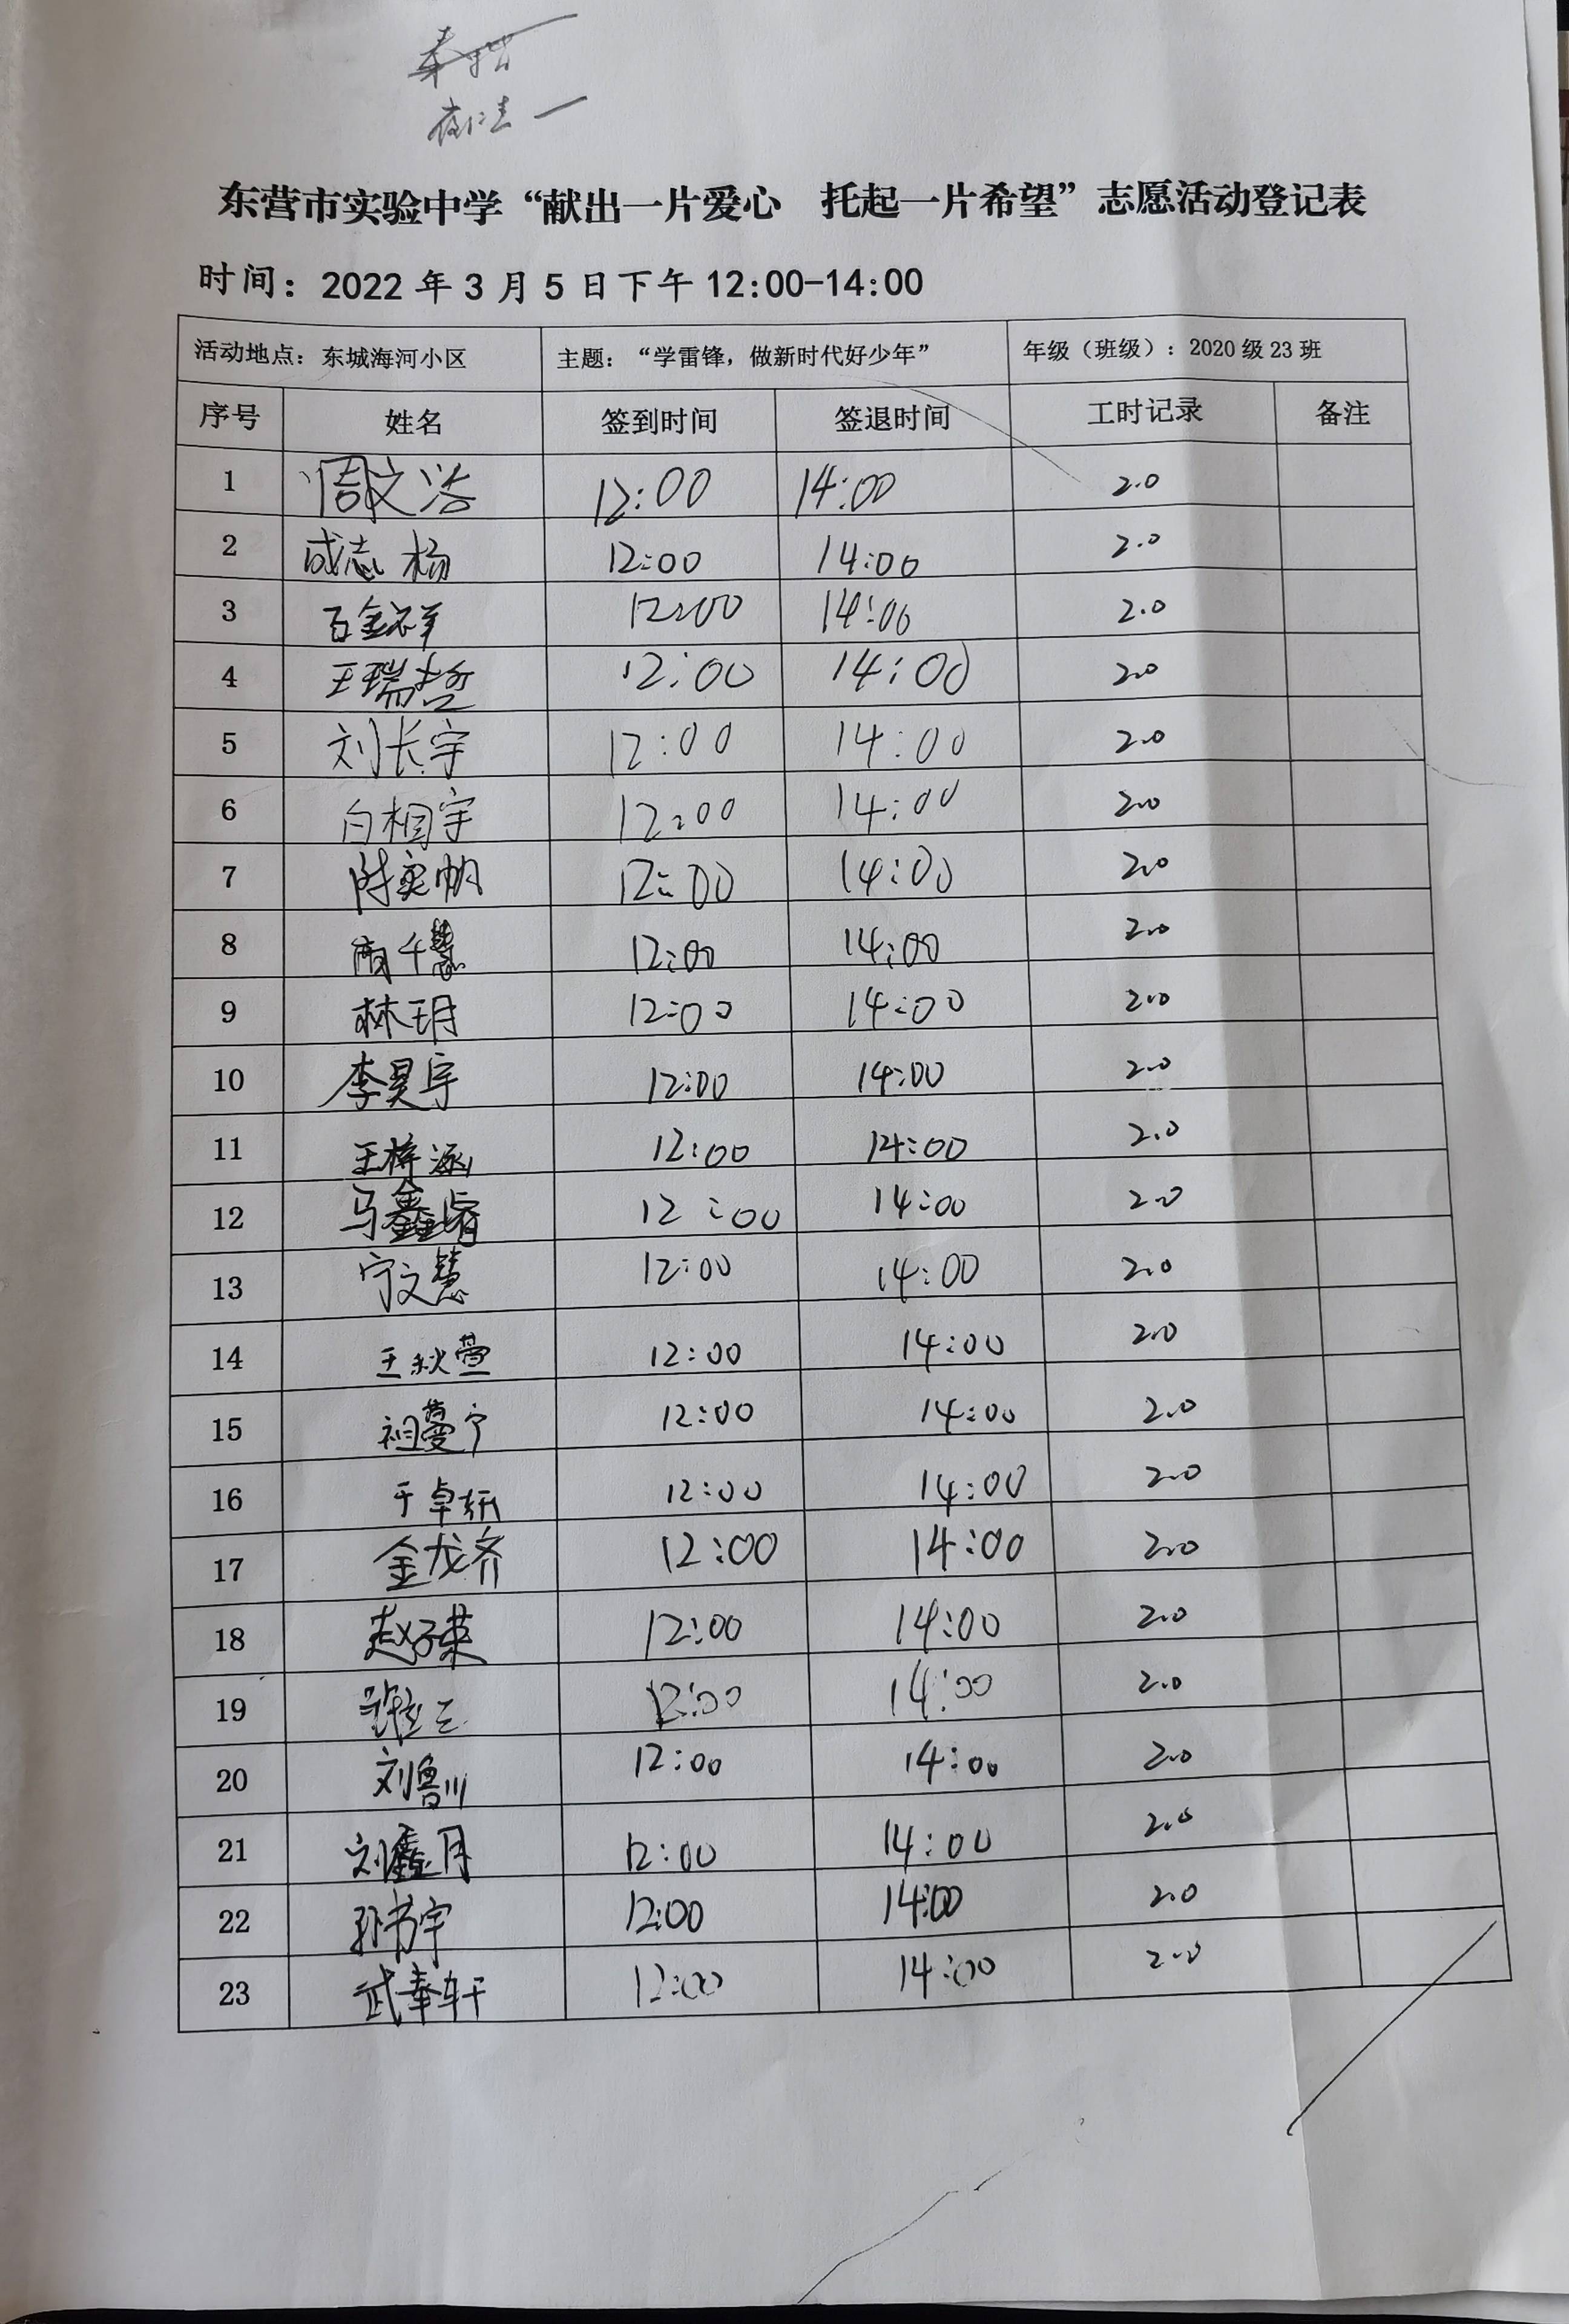 东营市实验中学“献出一片爱心 托起一片希望”志愿活动登记表
时间：2022年3月5日下午12:00-14:00
活动地点：东城海河小区 主题：“学雷锋，做新时代好少年” 年级（班级）：2020级23班
序号 姓名 签到时间 签退时间 工时记录 备注
1 周文浩 12:00 14:00 2.0
2 成志杨 12:00 14:00 2.0
3 石金祥 12:00 14:00 2.0
4 王瑞哲 12:00 14:00 2.0
5 刘长宇 12:00 14:00 2.0
6 白相宇 12:00 14:00 2.0
7 陈奕帆 12:00 14:00 2.0
8 商千慧 12:00 14:00 2.0
9 林玥 12:00 14:00 2.0
10 李昊宇 12:00 14:00 2.0
11 王梓涵 12:00 14:00 2.0
12 马鑫睿 12:00 14:00 2.0
13 宁文慧 12:00 14:00 2.0
14 王秋萱 12:00 14:00 2.0
15 祠蔓宁 12:00 14:00 2.0
16 于卓妍 12:00 14:00 2.0
17 金龙齐 12:00 14:00 2.0
18 赵子荣 12:00 14:00 2.0
19 12:00 14:00 2.0
20 刘鲁川 12:00 14:00 2.0
21 刘鑫月 12:00 14:00 2.0
22 孙书宇 12:00 14:00 2.0
23 武奉轩 12:00 14:00 2.0